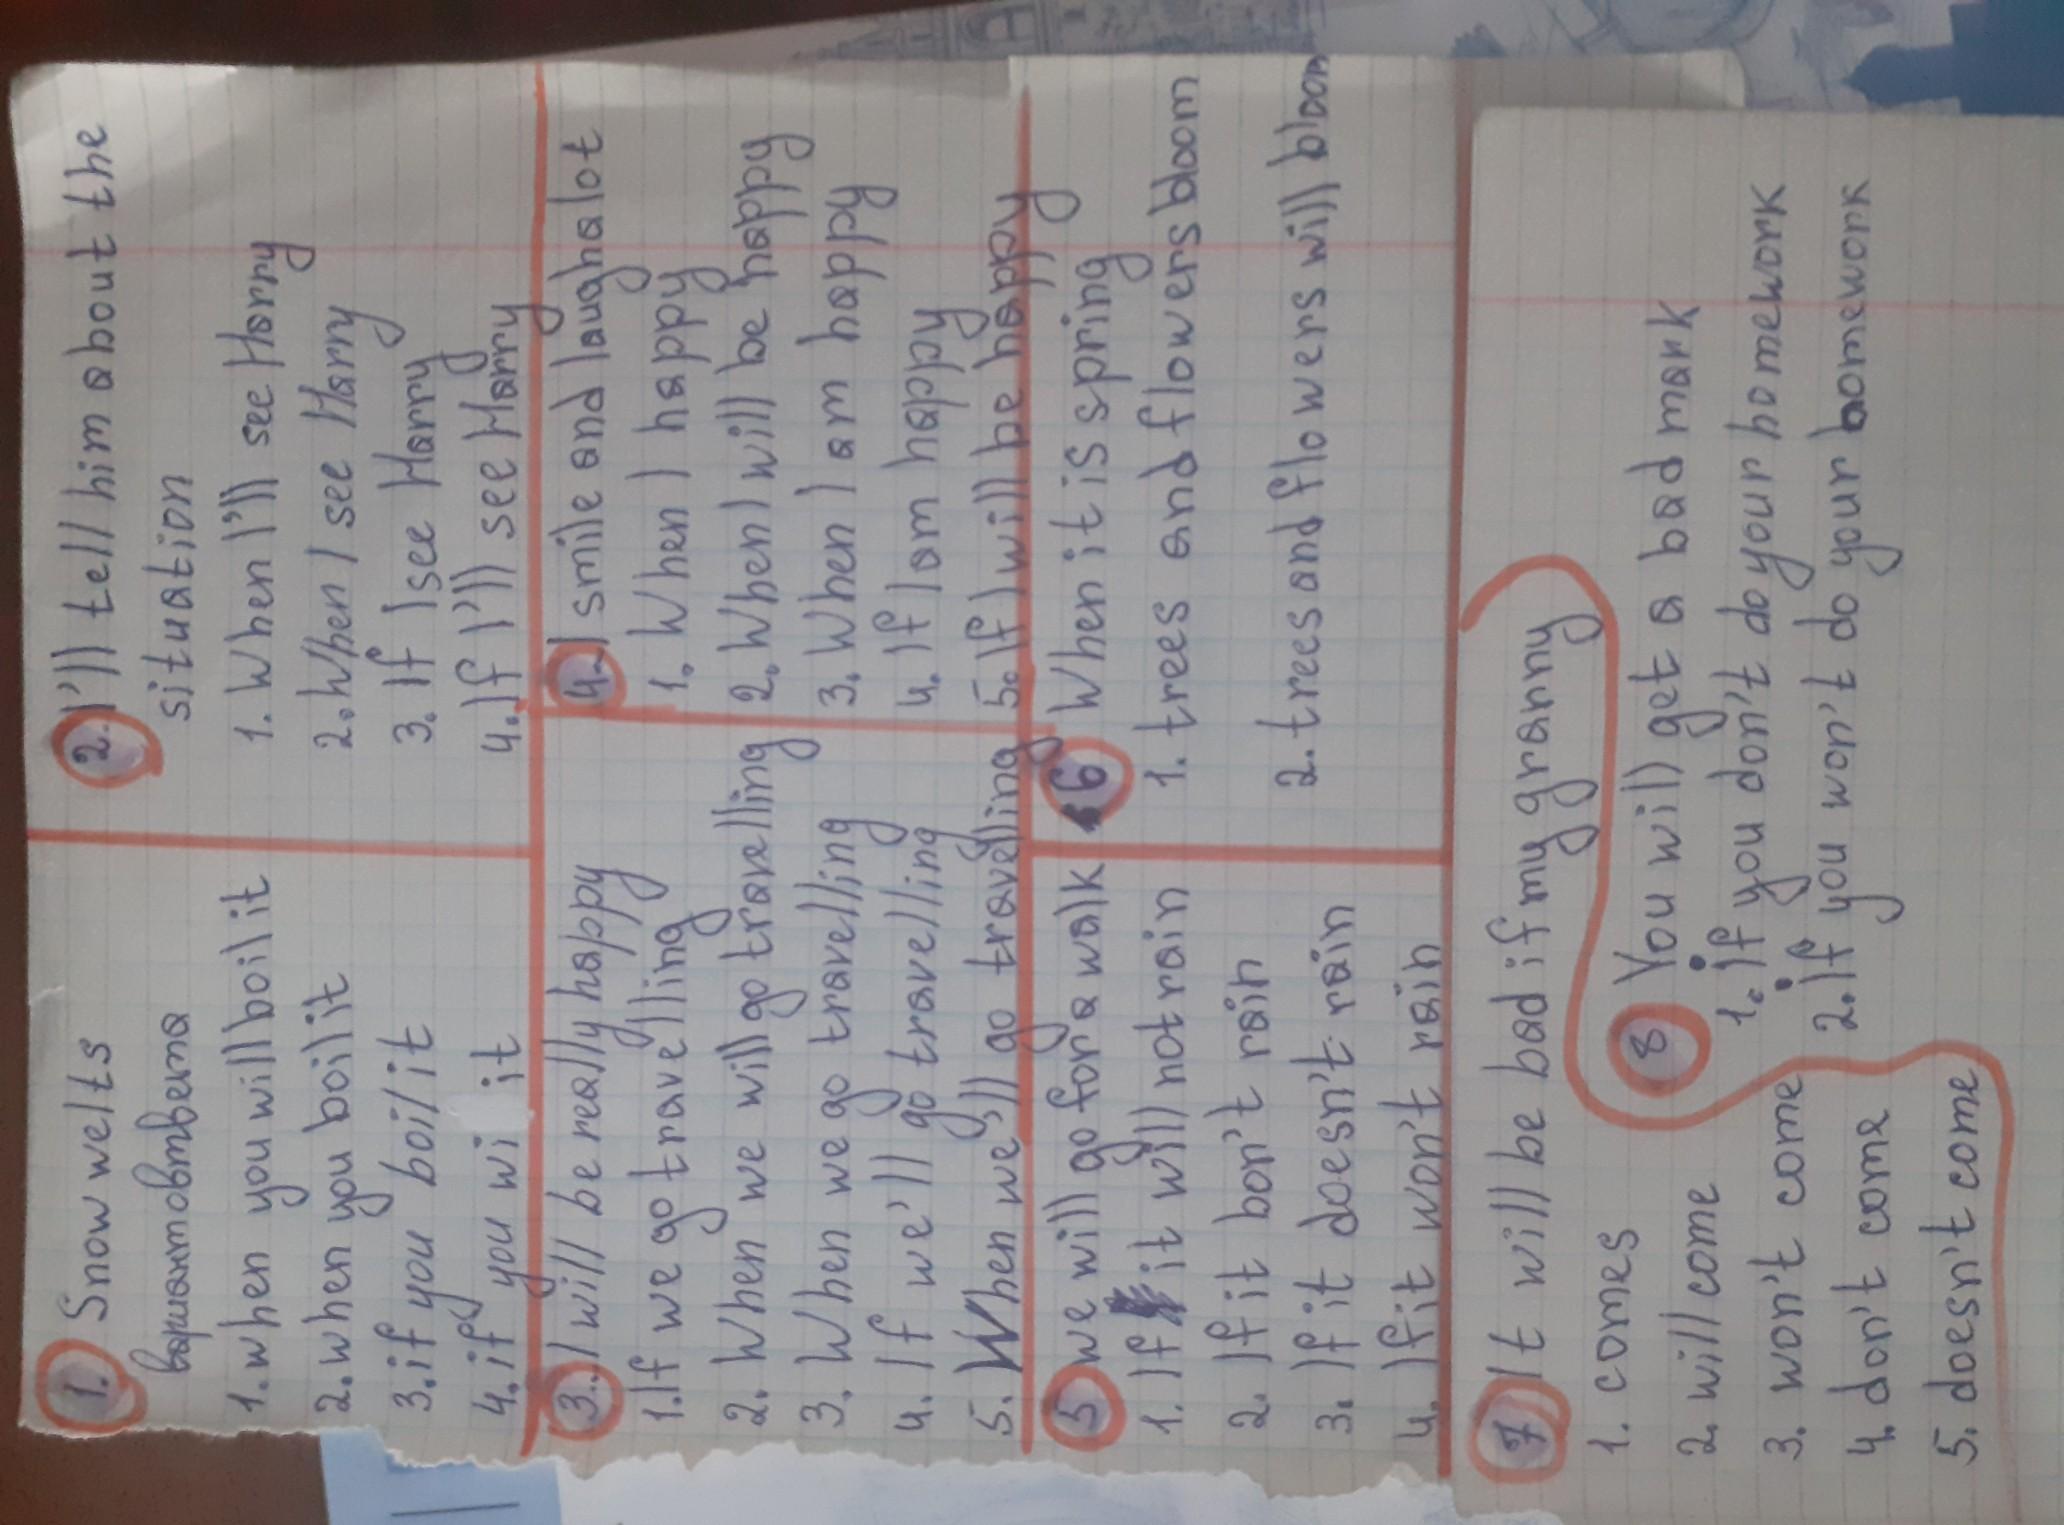 1. Snow welts
вариантовтвета
1. when you will boil it
2. when you boil it
3. if you boil it
4. if you wi it
2. I'll tell him about the
situation
1. When I'll see Harry
2. When I see Harry
3. If I see Harry
4. If I'll see Harry
3. I will be really happy
1. If we go travelling
2. When we will go travelling
3. When we go travelling
4. If we'll go travelling
5. When we'll go travelling
4. I smile and laugh a lot
1. When I happy
2. When I will be happy
3. When I am happy
4. If I am happy
5. If I will be happy
5 we will go for a walk
1. If it will not rain
2. If it bon't rain
3. If it doesn't rain
4. If it won't rain
6 When it is spring
1. trees and flowers bloom
2. trees and flowers will bloom
7 It will be bad if my granny
1. comes
2. will come
3. won't come
4. don't come
5. doesn't come
8 You will get a bad mark
1. If you don't do your homework
2. If you won't do your homework